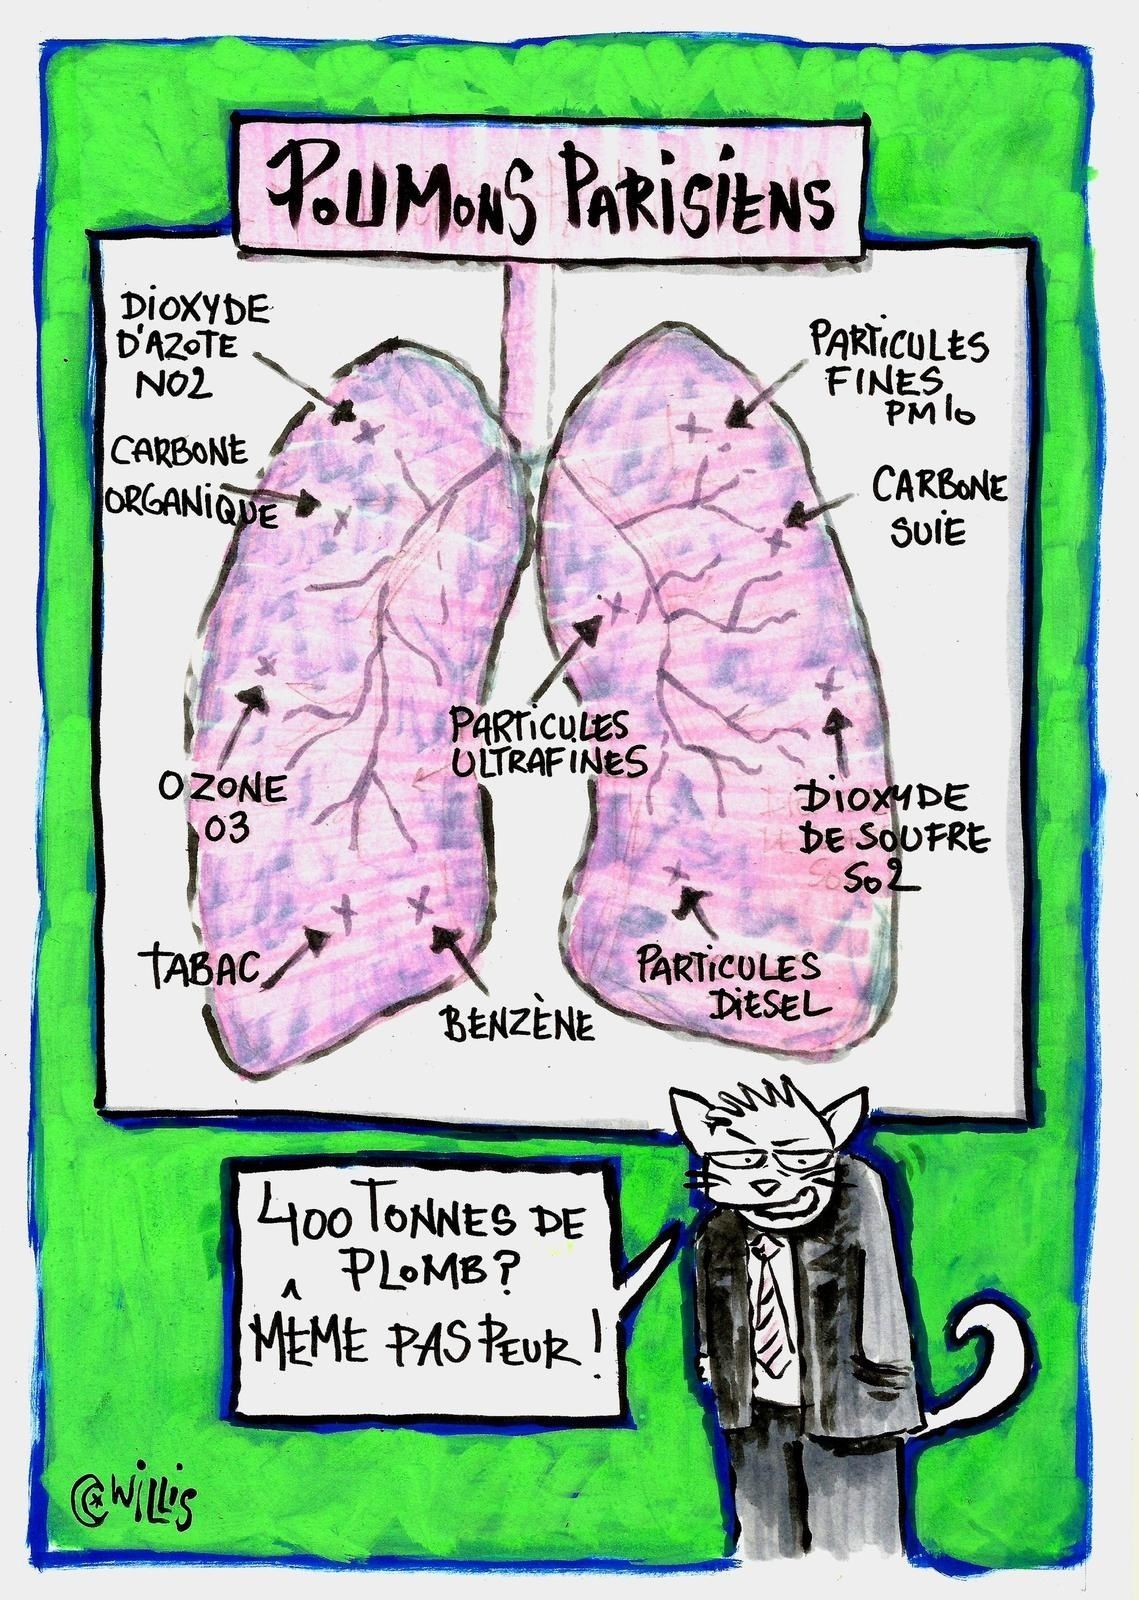 POUMONS PARISIENS
DIOXYDE
D'AZOTE
NO2
CARBONE
ORGANIQUE
OZONE
O3
TABAC
BENZÈNE
PARTICULES
ULTRAFINES
PARTICULES
FINES
PM10
CARBONE
SUIE
DIOXYDE
DE SOUFRE
SO2
PARTICULES
DIESEL
400 TONNES DE
PLOMB?
MÊME PAS PEUR!
©WILLIS